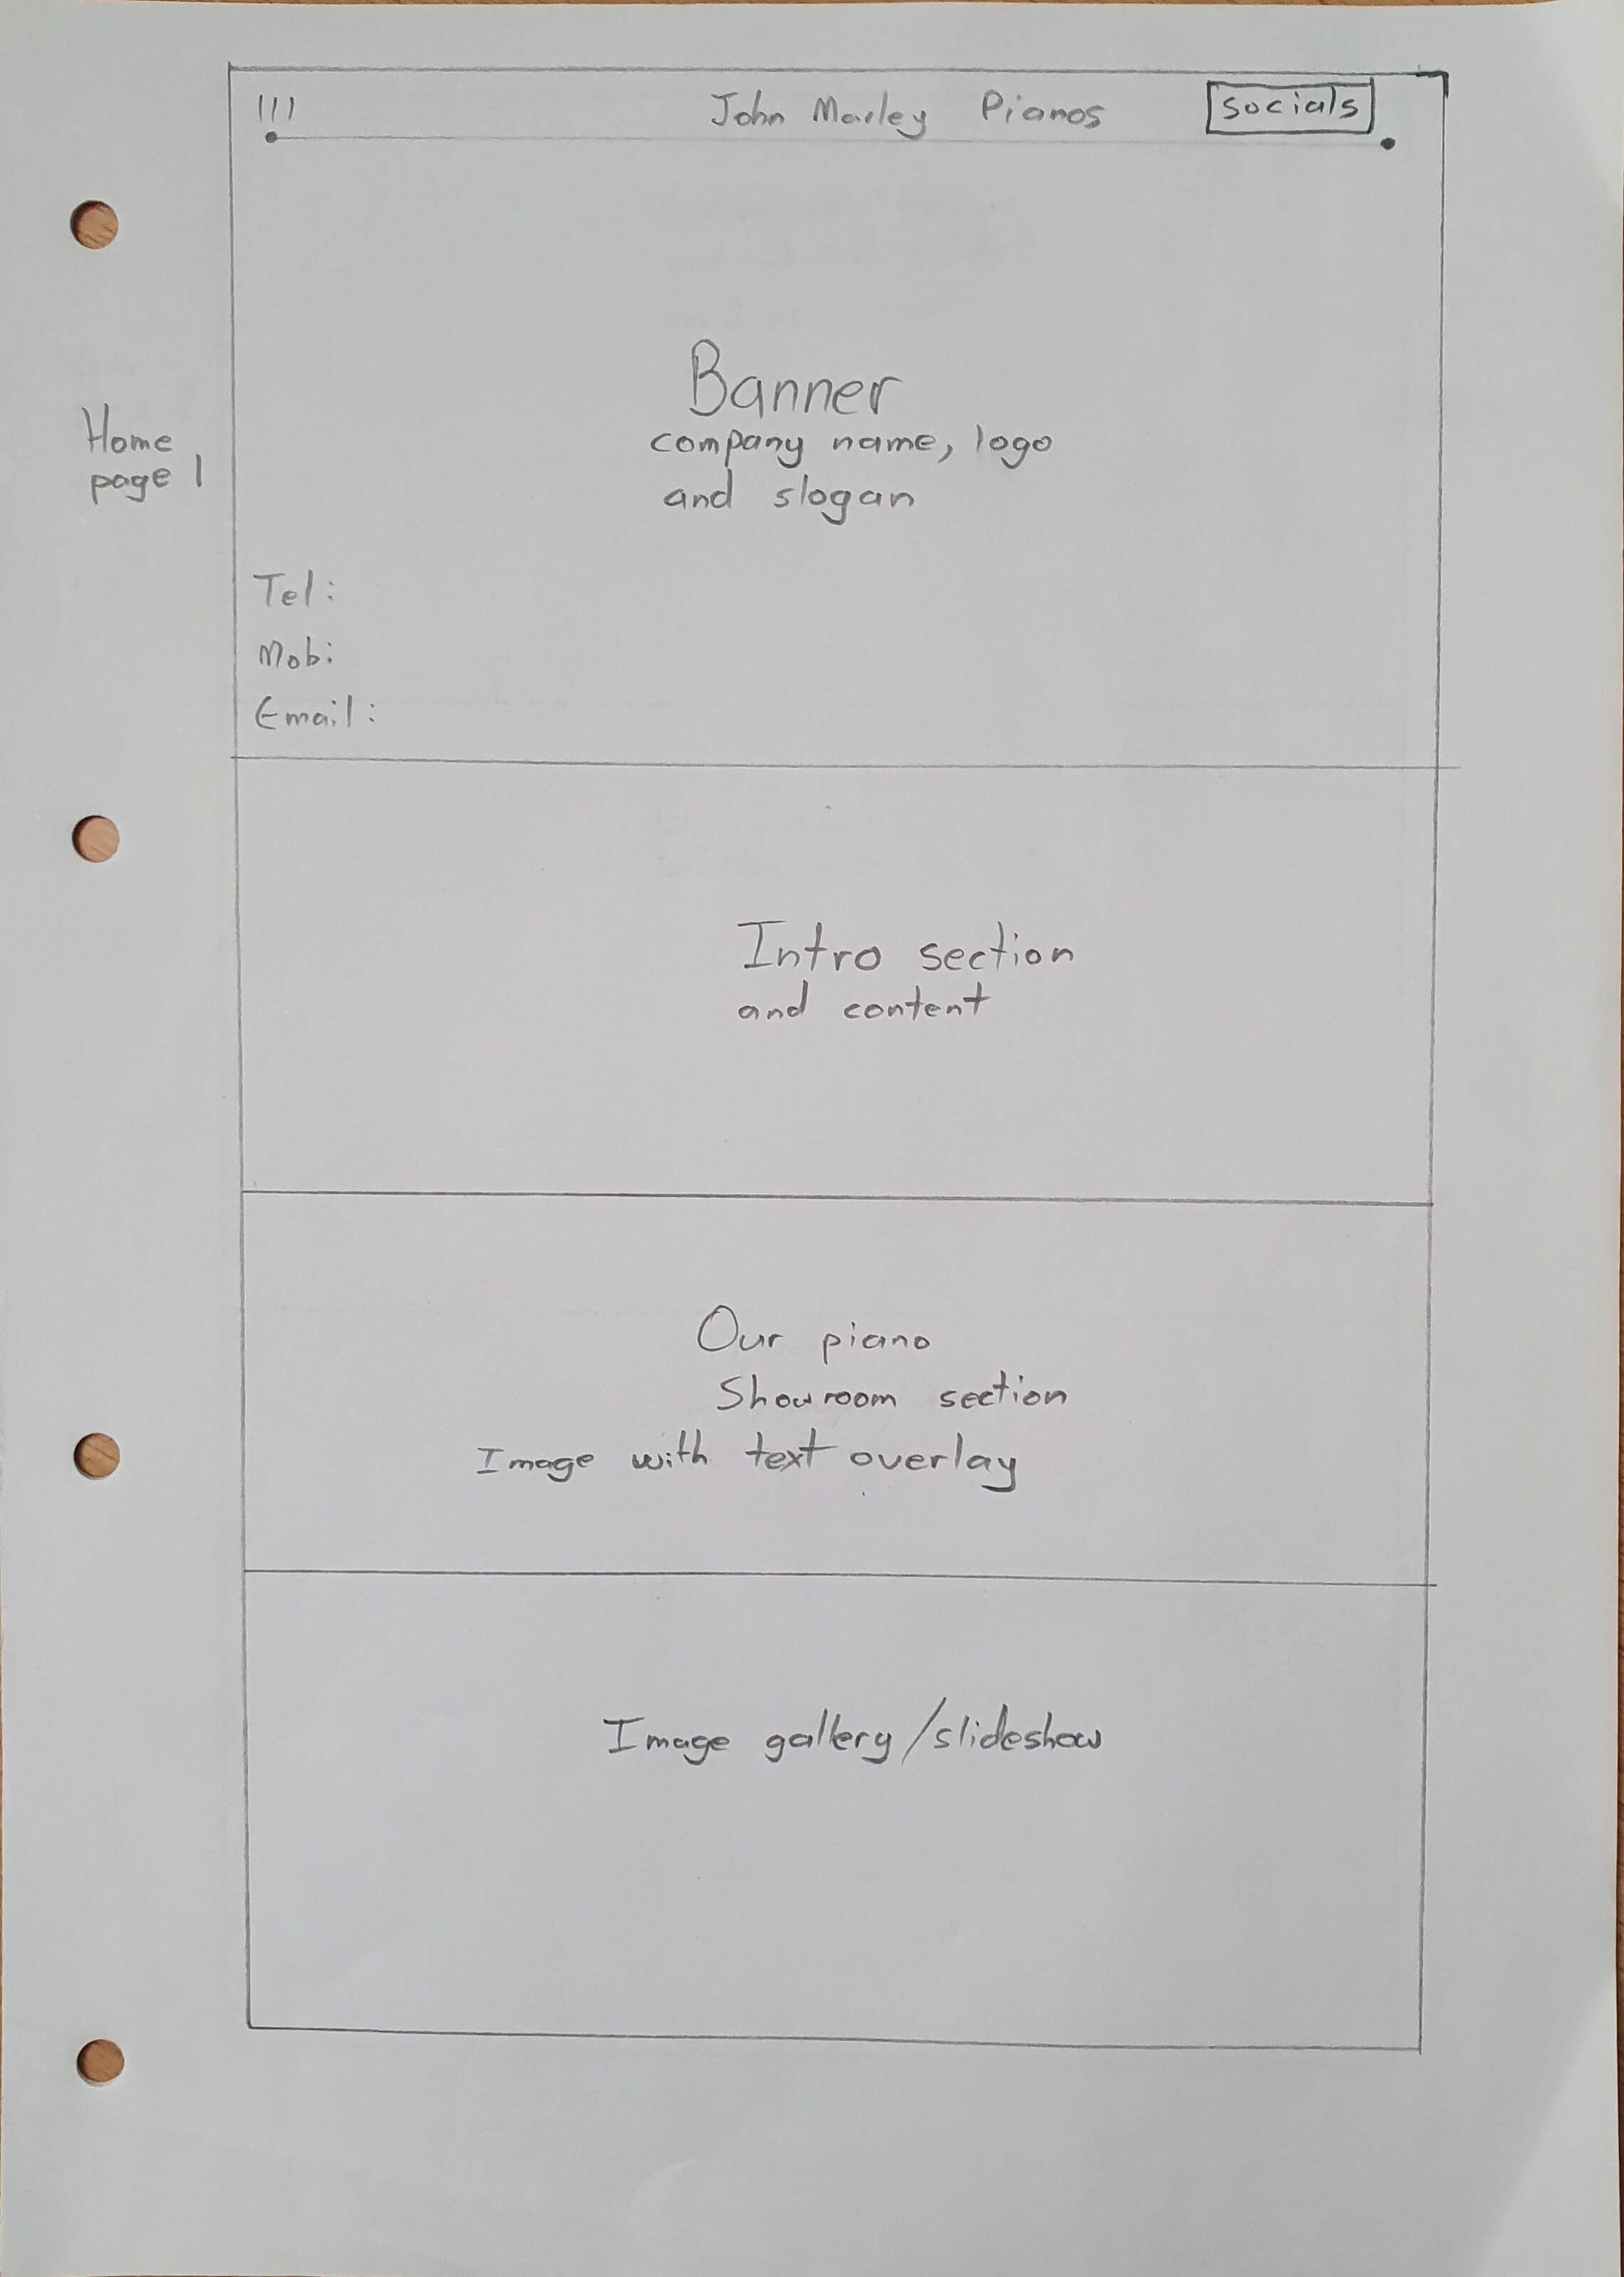 John Marley Pianos
socials
Banner
company name, logo
and slogan
Home
page 1
Tel:
Mob:
Email:
Intro section
and content
Our piano
Showroom section
Image with text overlay
Image gallery/slideshow